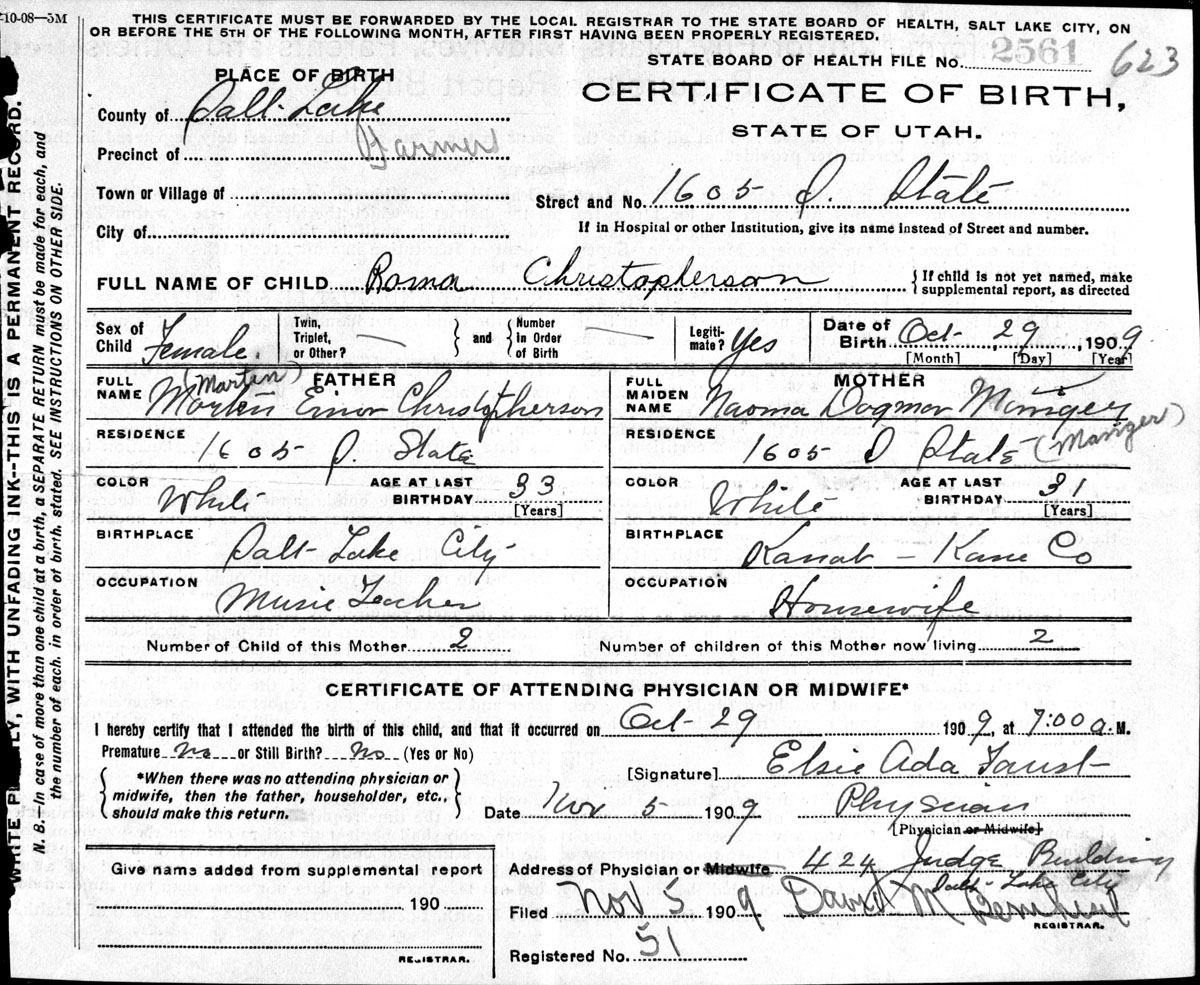 10-08—5M
THIS CERTIFICATE MUST BE FORWARDED BY THE LOCAL REGISTRAR TO THE STATE BOARD OF HEALTH, SALT LAKE CITY, ON
OR BEFORE THE 5TH OF THE FOLLOWING MONTH, AFTER FIRST HAVING BEEN PROPERLY REGISTERED.
STATE BOARD OF HEALTH FILE No. 2561 623
PLACE OF BIRTH
CERTIFICATE OF BIRTH,
STATE OF UTAH.
County of Salt Lake
Precinct of Farmers
Town or Village of
Street and No. 1605 S. State
City of
If in Hospital or other Institution, give its name instead of Street and number.
FULL NAME OF CHILD Roma Christopherson { If child is not yet named, make supplemental report, as directed
Sex of Child Female. Twin, Triplet, or Other? — } and { Number in Order of Birth — Legiti-mate? Yes Date of Birth Oct- 29, 1909
[Month] [Day] [Year]
FATHER
MOTHER
FULL NAME (Martin) Martin Einor Christopherson
FULL MAIDEN NAME Naoma Dagmar Manger (Manger)
RESIDENCE 1605 S. State
RESIDENCE 1605 S State
COLOR White AGE AT LAST BIRTHDAY 33 [Years]
COLOR White AGE AT LAST BIRTHDAY 31 [Years]
BIRTHPLACE Salt Lake City
BIRTHPLACE Kanab - Kane Co
OCCUPATION Music Teacher
OCCUPATION Housewife
Number of Child of this Mother 2
Number of children of this Mother now living 2
CERTIFICATE OF ATTENDING PHYSICIAN OR MIDWIFE*
I hereby certify that I attended the birth of this child, and that it occurred on Oct- 29 1909, at 7:00 a. M.
Premature No or Still Birth? No (Yes or No)
{ *When there was no attending physician or midwife, then the father, householder, etc., should make this return. }
[Signature] Elsie Ada Faust
Date Nov 5 1909 Physician
[Physician or Midwife]
Give name added from supplemental report
190
REGISTRAR.
Address of Physician or Midwife 424 Judge Building
Salt Lake City
Filed Nov 5 1909 David M
REGISTRAR.
Registered No. 51
WRITE PLAINLY, WITH UNFADING INK--THIS IS A PERMANENT RECORD.
N. B.—In case of more than one child at a birth, a SEPARATE RETURN must be made for each, and
the number of each, in order of birth, stated. SEE INSTRUCTIONS ON OTHER SIDE.